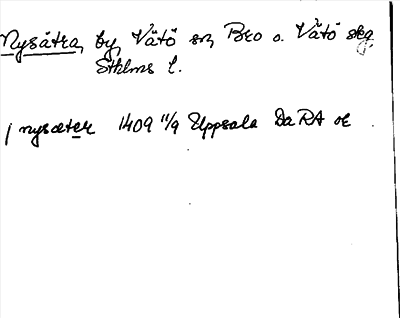 Nysätra, by, Vätö sn, Bro o. Vätö skg
Sthlms l.
/ nysæter 1409 11/9 Uppsala DaRA or